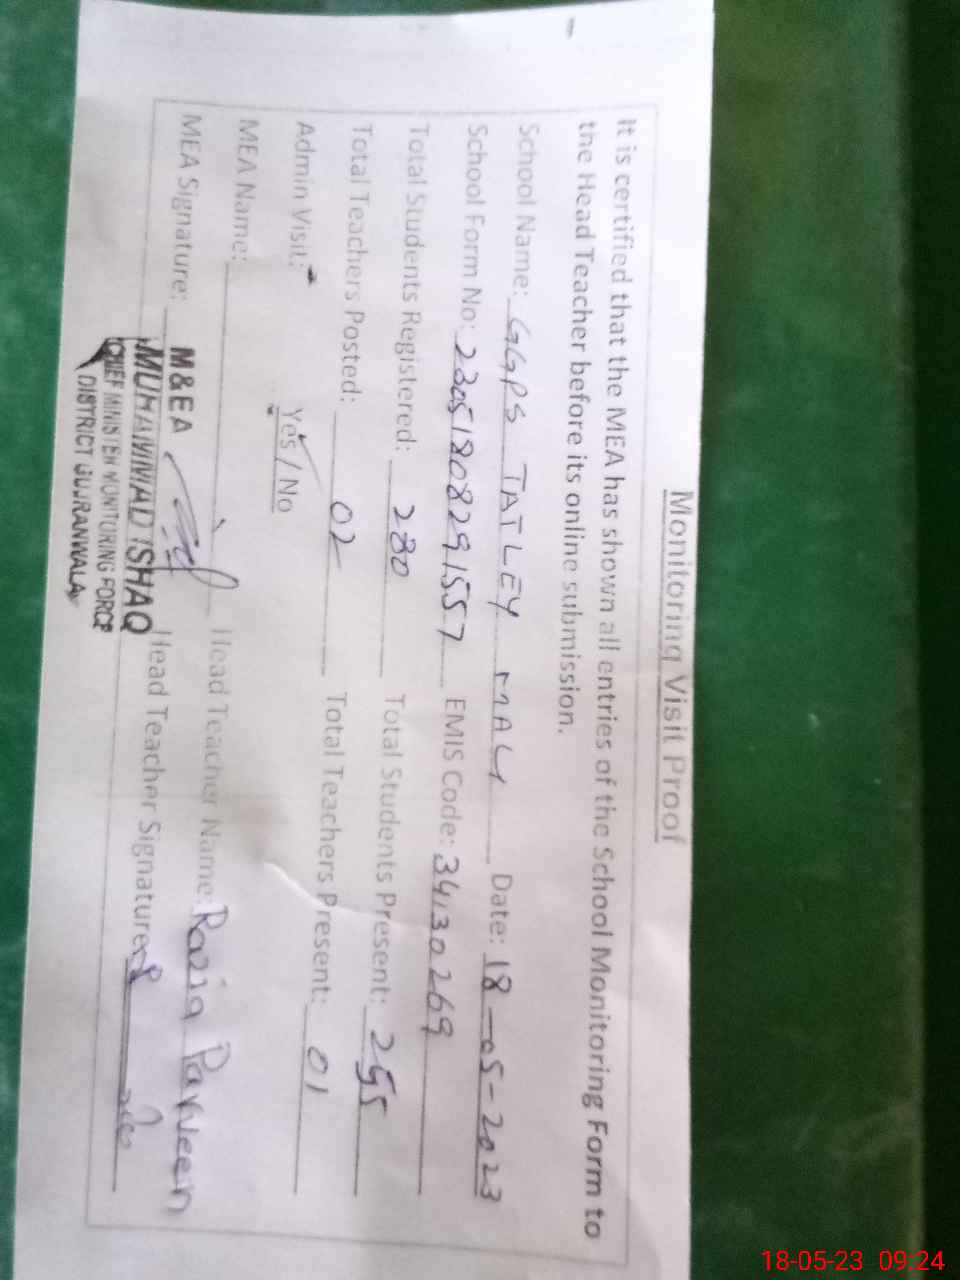 Monitoring Visit Proof
It is certified that the MEA has shown all entries of the School Monitoring Form to
the Head Teacher before its online submission.
School Name: GGPS TATLEY MALI Date: 18-05-2023
School Form No: 23051808291557 EMIS Code: 34130269
Total Students Registered: 280 Total Students Present: 255
Total Teachers Posted: 02 Total Teachers Present: 01
Admin Visit: Yes / No
MEA Name: Head Teacher Name: Razia Parveen
MEA Signature: Head Teacher Signature:
M&EA
MUHAMMAD ISHAQ
CHIEF MINISTER MONITORING FORCE
DISTRICT GUJRANWALA
18-05-23 09:24